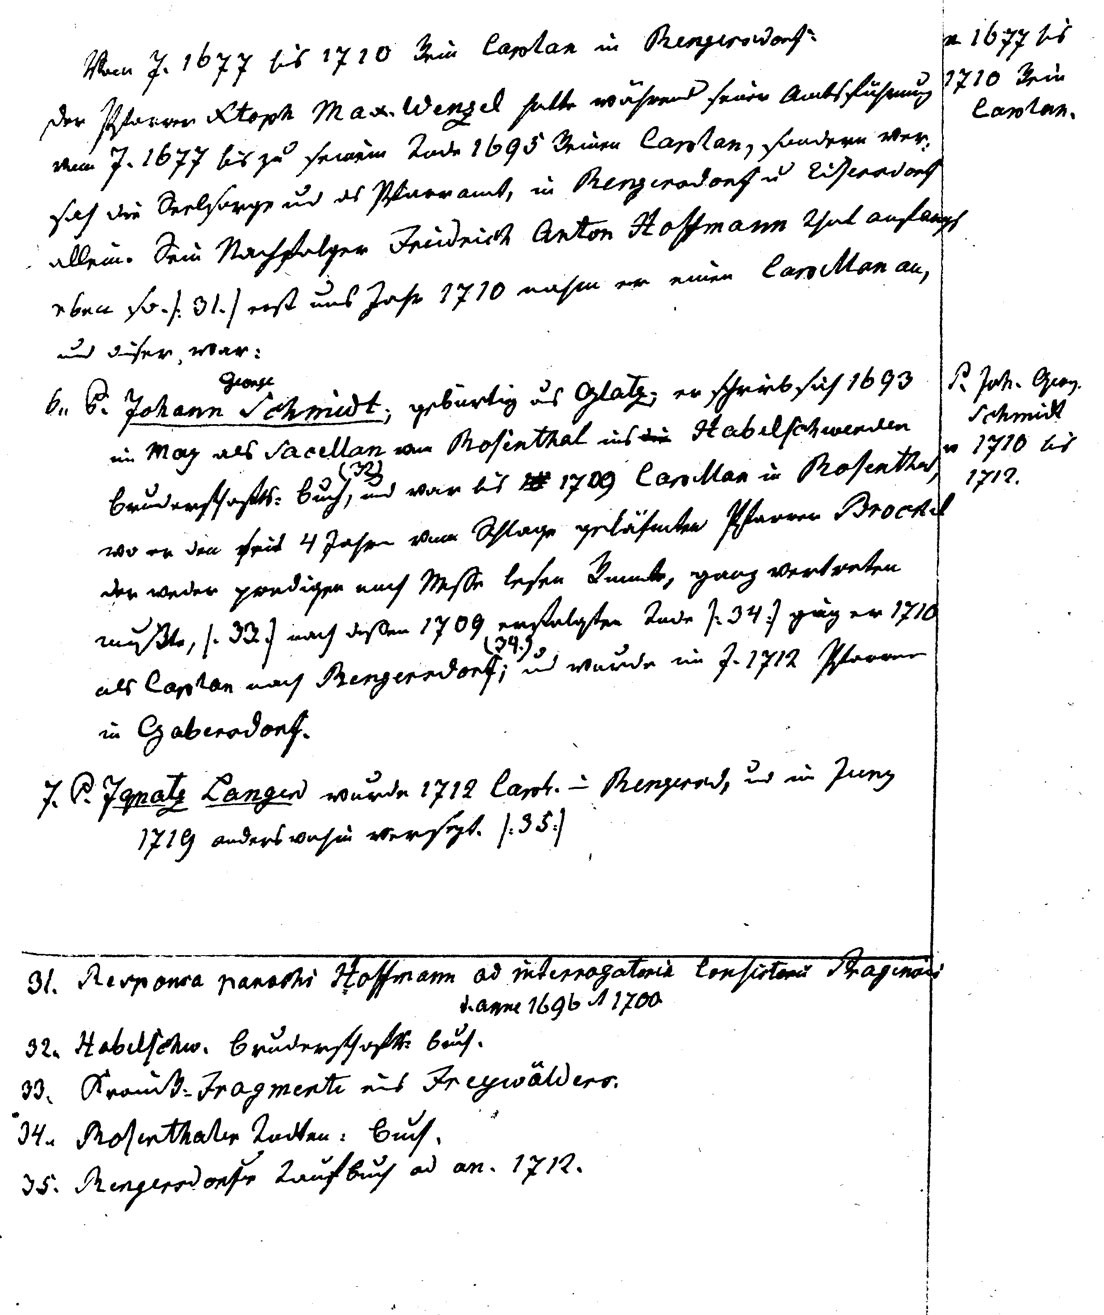 Vom J. 1677 bis 1710 kein Caplan in Rengersdorf:
Der Pfarrer Xtoph Max. Wenzel hatte während seiner Amtsführung
vom J. 1677 bis zu seinem Tode 1695 keinen Caplan, sondern ver-
sah die Seelsorge und das Pfarramt, in Rengersdorf u Eisersdorf
allein. Sein Nachfolger Friedrich Anton Hoffmann that anfangs
eben so. /: 31. / erst ums Jahr 1710 nahm er einen Capellan an,
und dieser war:
George
6., P. Johann Schmidt, gebürtig aus Glatz; er schrieb sich 1693
im May als Sacellan von Rosenthal ins Habelschwerden
(32)
Bruderschafts: Buch, und war bis 1709 Capellan in Rosenthal,
wo er den seit 4 Jahren vom Schlage gelähmten Pfarrer Brockel
der weder predigen noch Messe lesen konnte, ganz vertreten
mußte, /: 33.:/ nach dessen 1709 erfolgten Tode /: 34:/ ging er 1710
(34.)
als Caplan nach Rengersdorf; und wurde im J. 1712 Pfarrer
in Gabersdorf.
7. P. Ignatz Langer wurde 1712 Capl. in Rengersd, und im Juny
1719 anders wohin versezt. /: 35:/
n 1677 bis
1710 kein
Caplan.
P. Joh. Georg.
Schmidt
v 1710 bis
1712.
31. Responsa parochi Hoffmann ad interrogatoria Consistorii Pragensis
d. anno 1696 1700
32. Habelschw. Bruderschafts: Buch.
33. Fragmente aus Freywälders.
34. Rosenthaler Todten: Buch.
35. Rengersdorfer Taufbuch ad an. 1712.